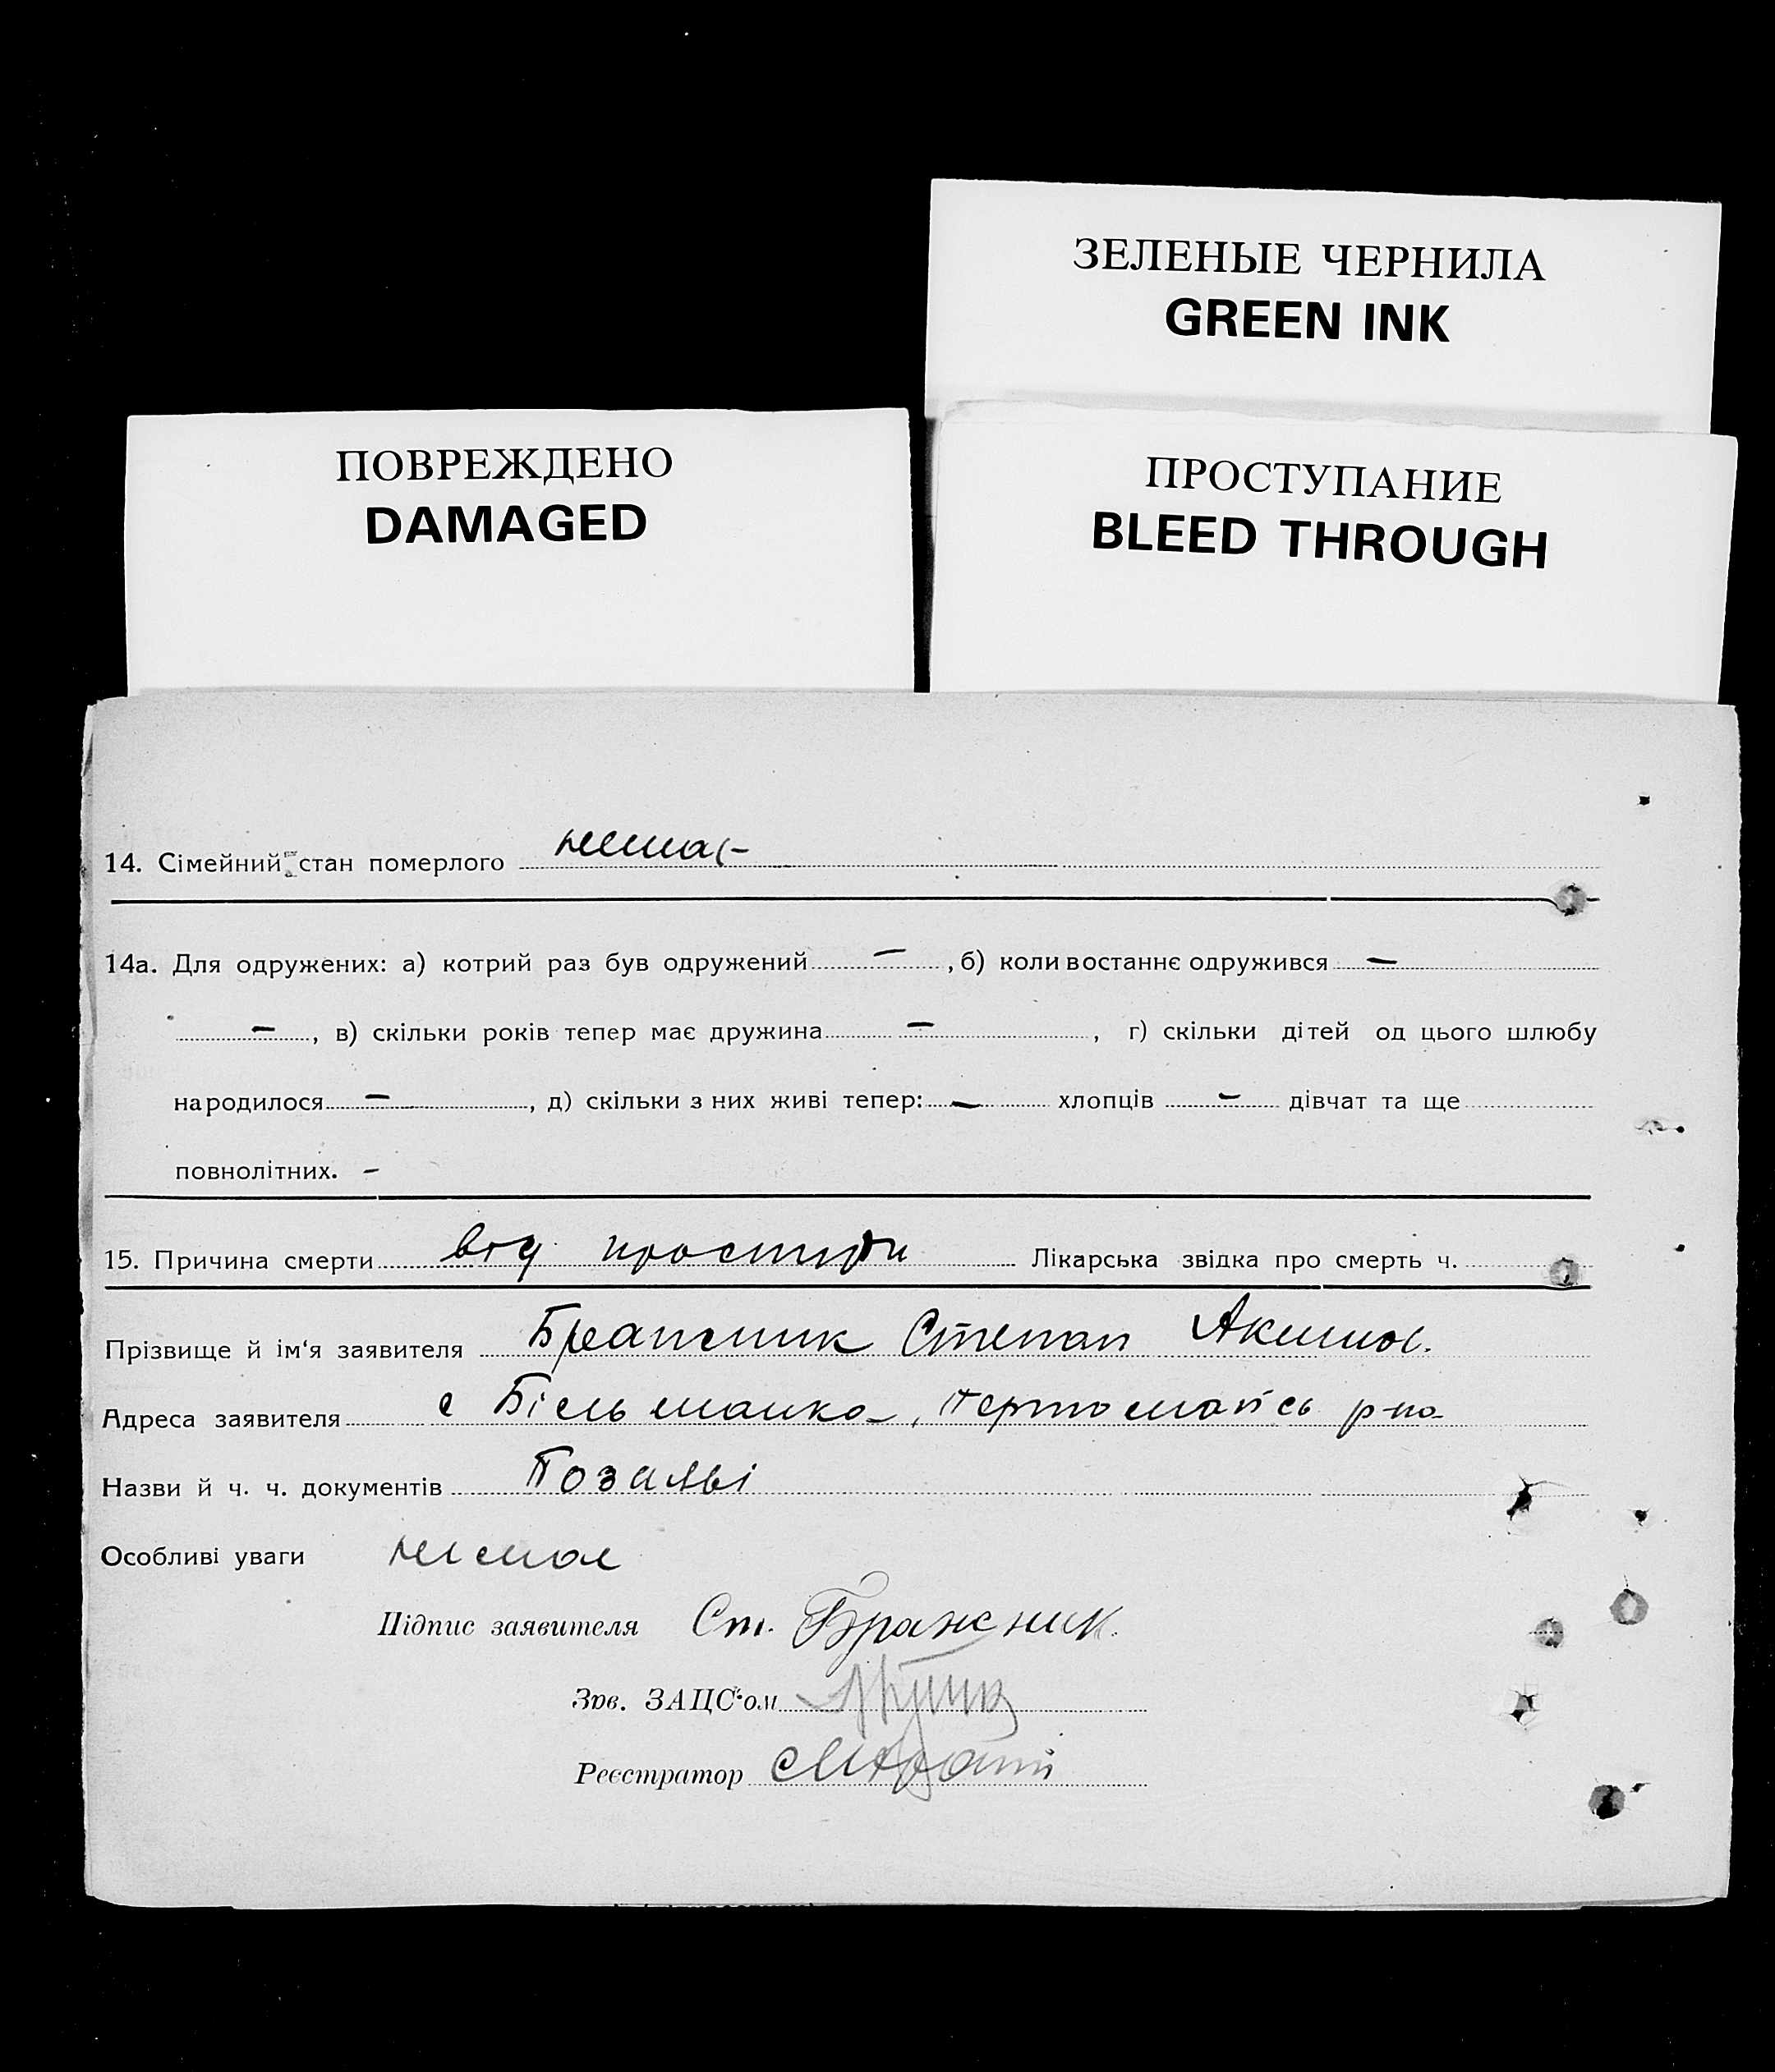 ЗЕЛЕНЫЕ ЧЕРНИЛА
GREEN INK
ПОВРЕЖДЕНО
DAMAGED
ПРОСТУПАНИЕ
BLEED THROUGH
14. Сімейний стан померлого
14а. Для одружених: а) котрий раз був одружений – , б) коли востаннє одружився –
– , в) скільки років тепер має дружина – , г) скільки дітей од цього шлюбу
народилося – , д) скільки з них живі тепер: – хлопців – дівчат та ще
повнолітних. –
15. Причина смерти від простуди Лікарська звідка про смерть ч.
Прізвище й ім'я заявителя Бражник Степан Акимов.
Адреса заявителя с Більманка, р-на
Назви й ч. ч. документів
Особливі уваги немає
Підпис заявителя Ст. Бражник.
Зав. ЗАЦС'ом
Реєстратор